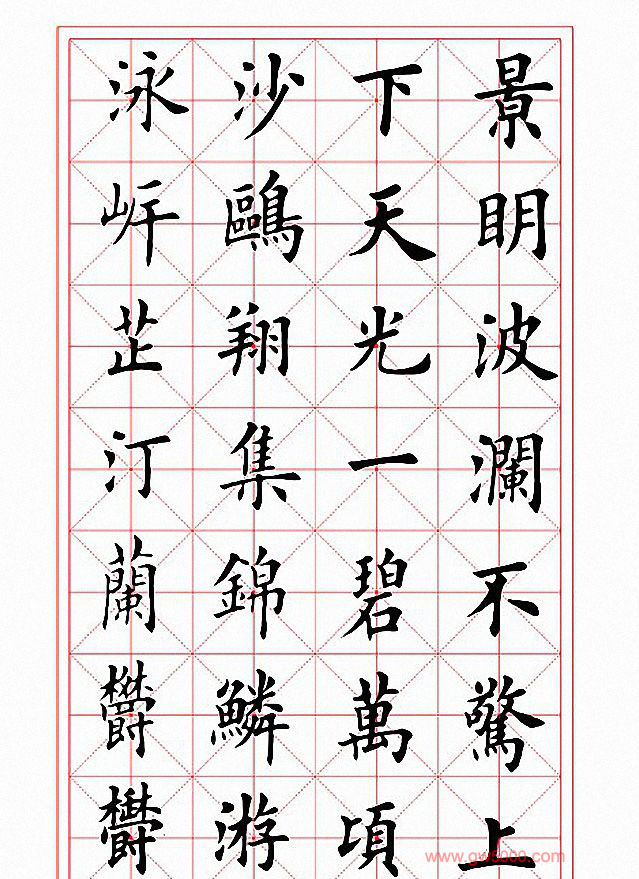 景明波瀾不驚上
下天光一碧萬頃
沙鷗翔集錦鱗游
泳岸芷汀蘭欝欝
www.gw5000.com